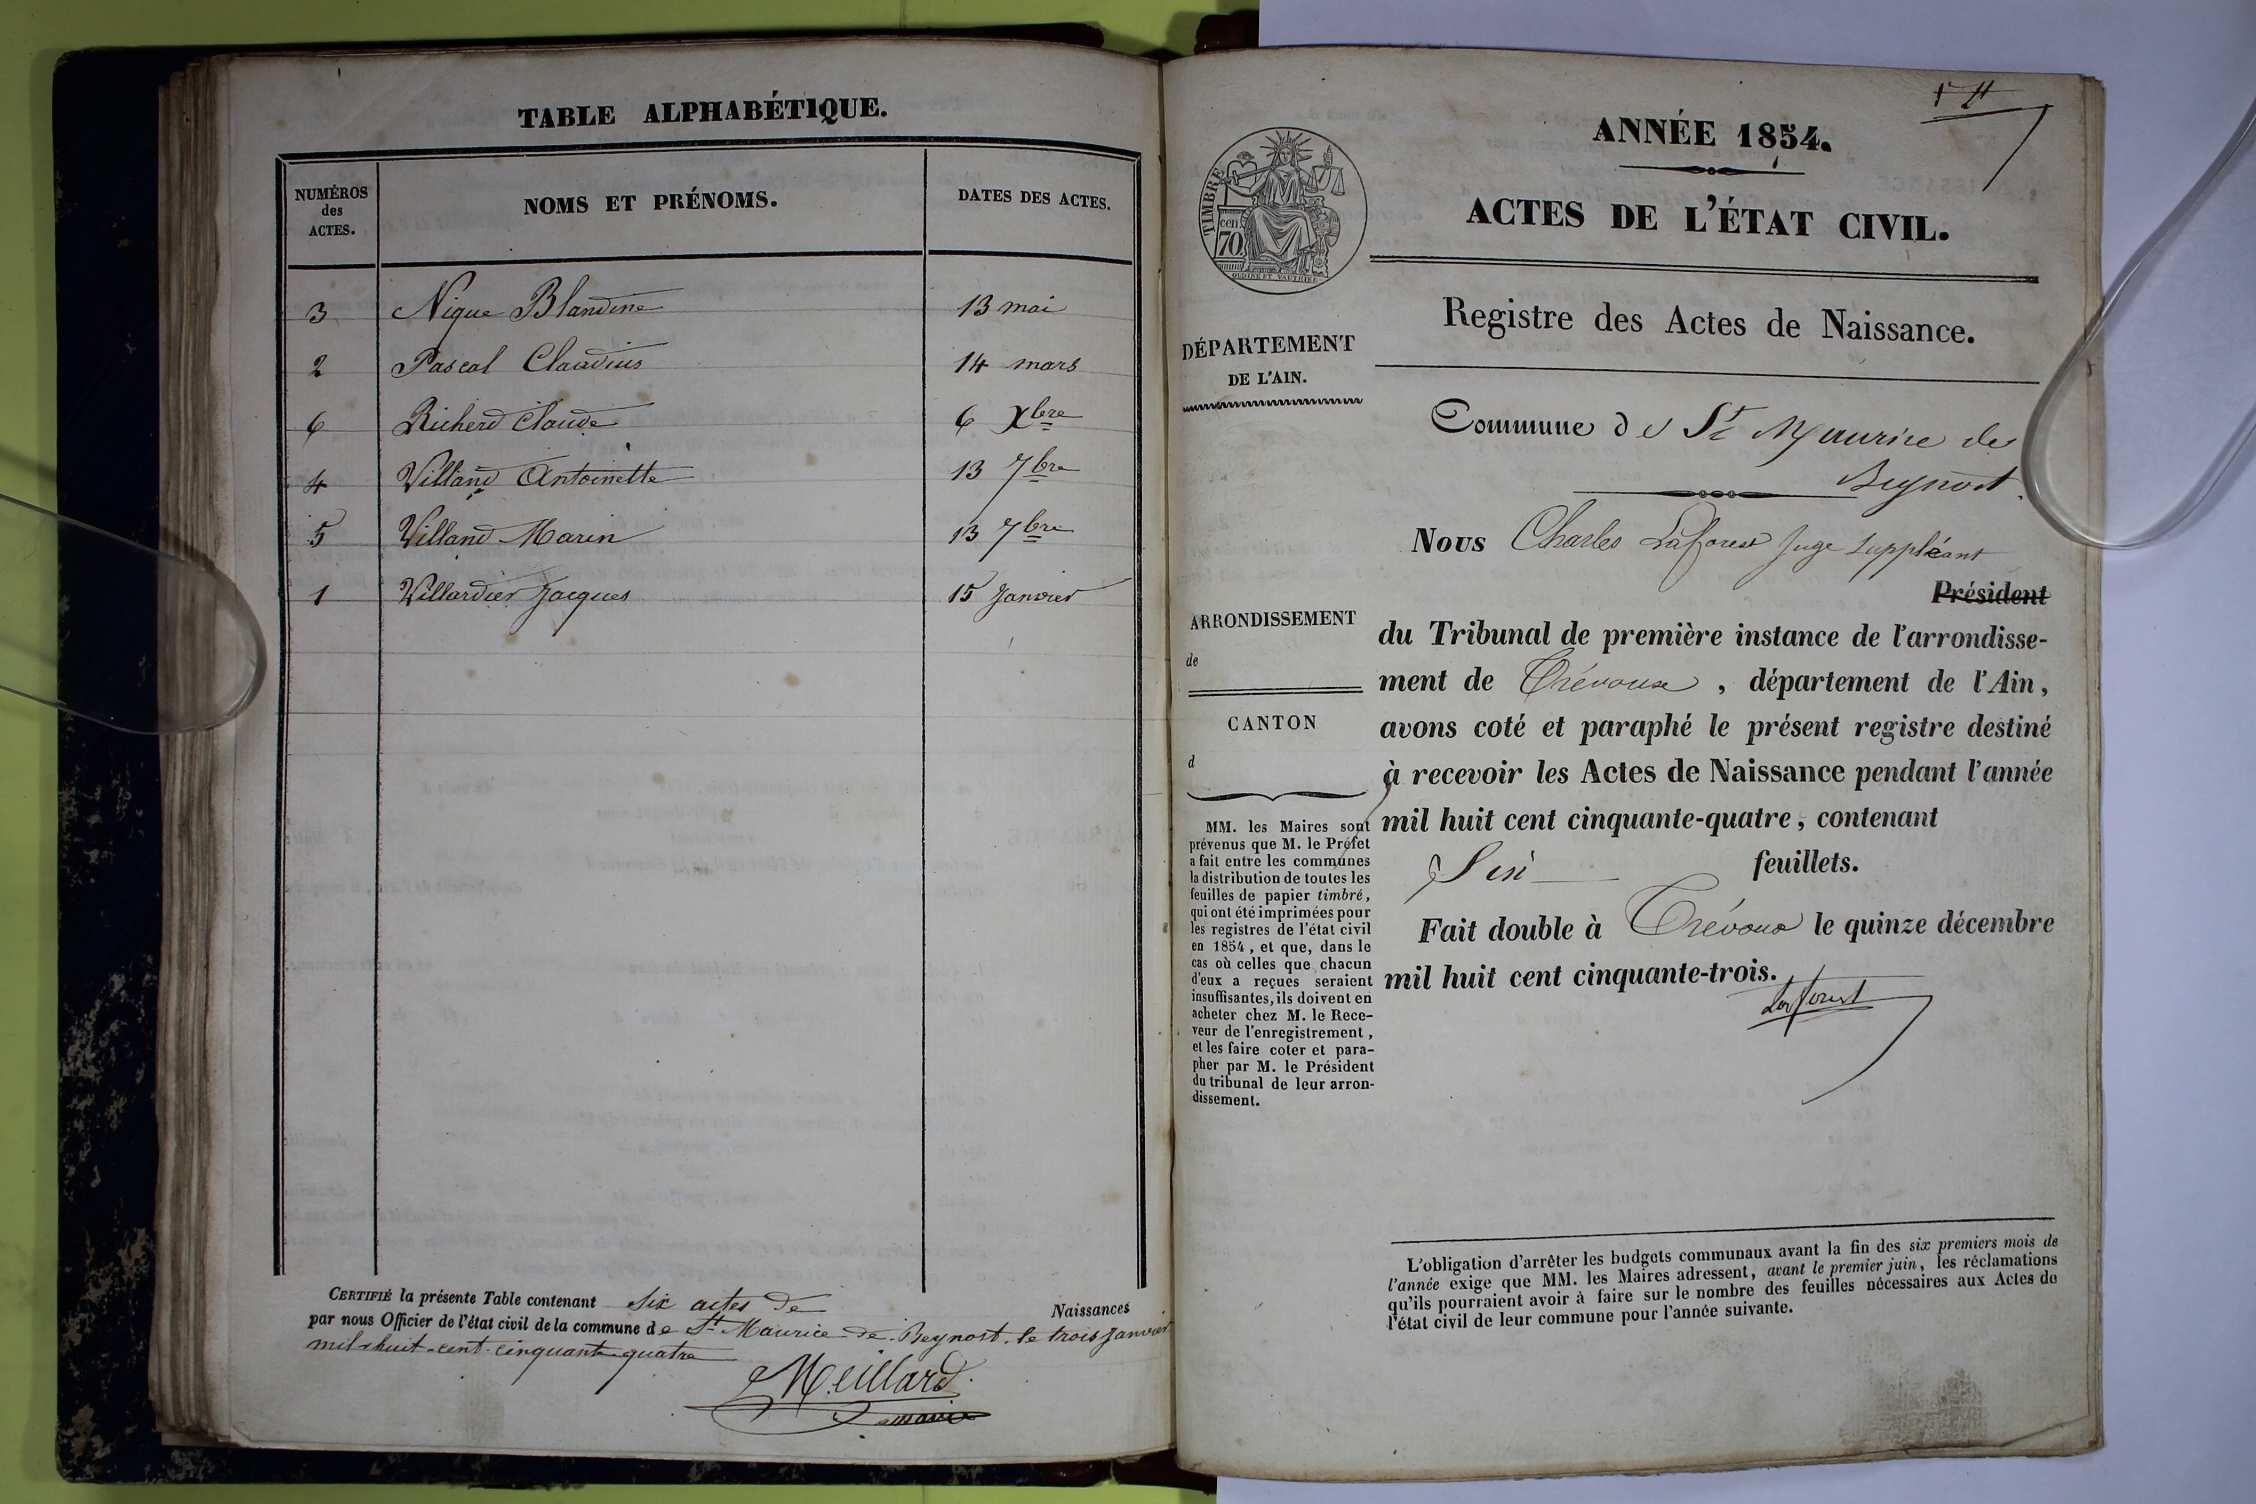 TABLE ALPHABÉTIQUE.
NUMÉROS
des
ACTES.
NOMS ET PRÉNOMS.
DATES DES ACTES.
3 Nique Blandine 13 mai
2 Pascal Claudius 14 mars
6 Richerd Claude 6 Xbre
4 Villand Antoinette 13 7bre
5 Villand Marin 13 7bre
1 Villardier Jacques 15 Janvier
CERTIFIÉ la présente Table contenant six actes de Naissances
par nous Officier de l'état civil de la commune de St Maurice-de-Beynost. le trois Janvier
mil-huit-cent-cinquante quatre
Meillard
maire
ANNÉE 1854.
ACTES DE L'ÉTAT CIVIL.
TIMBRE
cen
70
OUDINÉ ET VAUTHIER
Registre des Actes de Naissance.
DÉPARTEMENT
DE L'AIN.
Commune de St Maurice de
Beynost
ARRONDISSEMENT
de
CANTON
d
MM. les Maires sont
prévenus que M. le Préfet
a fait entre les communes
la distribution de toutes les
feuilles de papier timbré,
qui ont été imprimées pour
les registres de l'état civil
en 1854, et que, dans le
cas où celles que chacun
d'eux a reçues seraient
insuffisantes, ils doivent en
acheter chez M. le Rece-
veur de l'enregistrement,
et les faire coter et para-
pher par M. le Président
du tribunal de leur arron-
dissement.
Nous Charles Laforest Juge suppléant
Président
du Tribunal de première instance de l'arrondisse-
ment de Trévoux, département de l'Ain,
avons coté et paraphé le présent registre destiné
à recevoir les Actes de Naissance pendant l'année
mil huit cent cinquante-quatre, contenant
Six feuillets.
Fait double à Trévoux le quinze décembre
mil huit cent cinquante-trois.
Laforest
L'obligation d'arrêter les budgets communaux avant la fin des six premiers mois de
l'année exige que MM. les Maires adressent, avant le premier juin, les réclamations
qu'ils pourraient avoir à faire sur le nombre des feuilles nécessaires aux Actes de
l'état civil de leur commune pour l'année suivante.